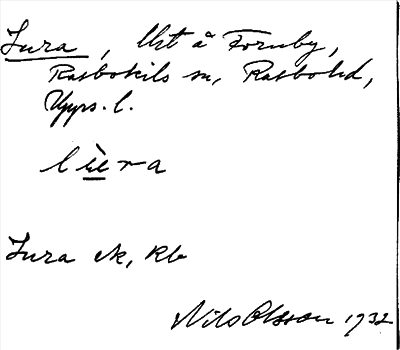 Lura, Uht å Fornby,
Rasbokils sn, Rasbo hd,
Upps. l.
lùra
Lura ek, kb
Nils Olsson 1932